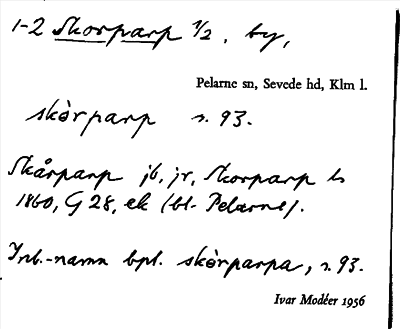 1-2 Skorparp 1/2, by,
Pelarne sn, Sevede hd, Klm l.
skòrparp s. 93.
Skårparp jb, jr, Skorparp ls
1860, G 28, ek (bl. Pelarne).
Inb.-namn bpl. skòrparpa, s. 93.
Ivar Modéer 1956